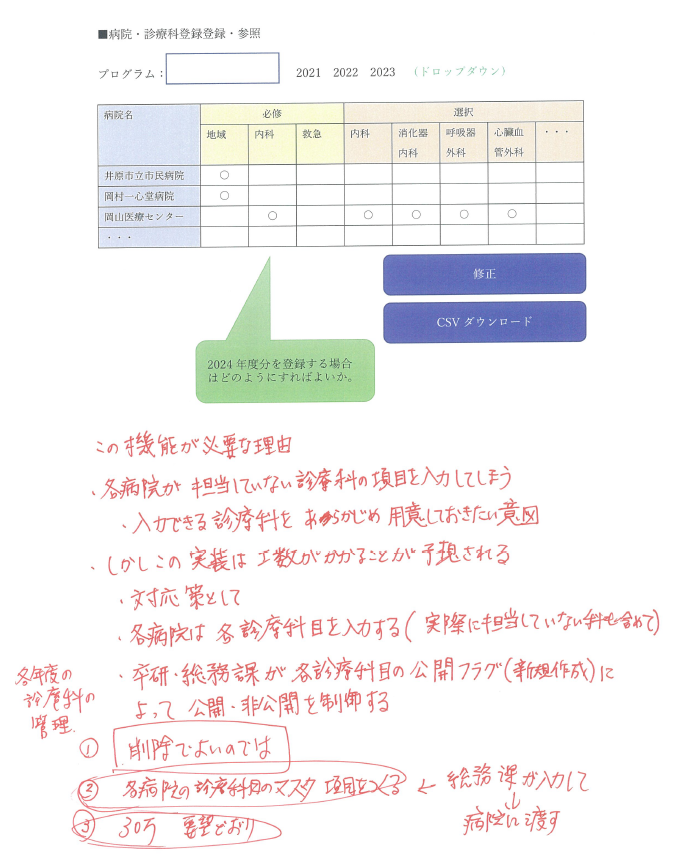 ■病院・診療科登録登録・参照
プログラム： 2021 2022 2023 （ドロップダウン）
病院名 必修 選択
地域 内科 救急 内科 消化器内科 呼吸器外科 心臓血管外科 ・・・
井原市立市民病院 ○
岡村一心堂病院 ○
岡山医療センター ○ ○ ○ ○ ○
・・・
修正
CSV ダウンロード
2024 年度分を登録する場合
はどのようにすればよいか。
この機能が必要な理由
・各病院が担当していない診療科の項目を入力してしまう
・入力できる診療科を あらかじめ 用意しておきたい意図
・しかしこの実装は工数がかかることが予想される
・対応策として
・各病院は各診療科目を入力する(実際に担当していない科も含めて)
・卒研・総務課が各診療科目の公開フラグ(新規作成)に
よって公開・非公開を制御する
各年度の
診療科の
管理.
① 削除でよいのでは
② 各病院の診療科目のマスタ項目をつくる ← 総務課が入力して
↓
病院に渡す
③ 30万 要望どおり